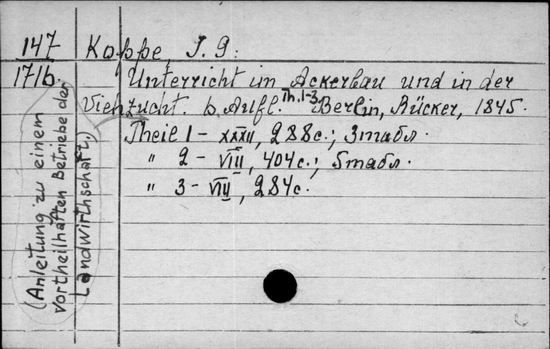 147
171b.
Koppe J. G:
Unterricht im Ackerbau und in der
Viehzucht. 6. Aufl. Th. 1-3 Berlin, Rücker, 1845.
Theil 1 - XXXII, 288 c.; 3 табл.
" 2 - VIII, 404 c.; 5 табл.
" 3 - VIII, 284 c.
(Anleitung zu einem
vortheilhaften Betriebe der
Landwirthschaft.)